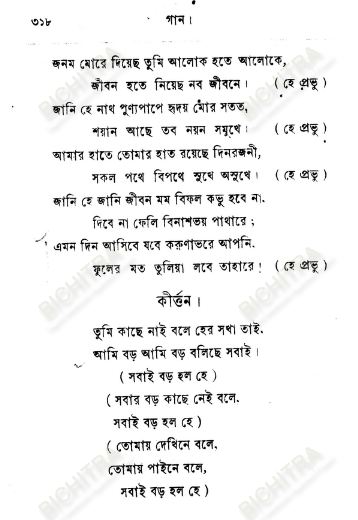 ৩১৮ গান।
জনম মোরে দিয়েছ তুমি আলোক হতে আলোকে,
জীবন হতে নিয়েছ নব জীবনে। ( হে প্রভু )
জানি হে নাথ পুণ্যপাপে হৃদয় মোর সতত,
শয়ান আছে তব নয়ন সমুখে। ( হে প্রভু )
আমার হাতে তোমার হাত রয়েছে দিনরজনী,
সকল পথে বিপথে সুখে অসুখে। ( হে প্রভু )
জানি হে জানি জীবন মম বিফল কভু হবে না.
দিবে না ফেলি বিনাশভয় পাথারে ;
এমন দিন আসিবে যবে করুণাভরে আপনি.
ফুলের মত তুলিয়া লবে তাহারে! ( হে প্রভু )
কীর্ত্তন।
তুমি কাছে নাই বলে হের সখা তাই.
আমি বড় আমি বড় বলিছে সবাই।
( সবাই বড় হল হে )
( সবার বড় কাছে নেই বলে.
সবাই বড় হল হে )
( তোমায় দেখিনে বলে,
তোমায় পাইনে বলে,
সবাই বড় হল হে )
BICHITRA